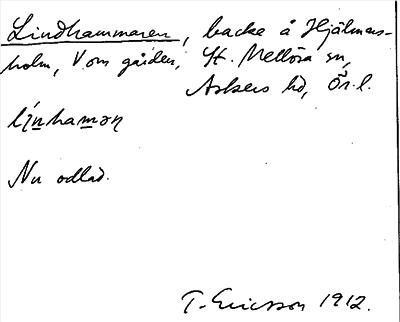 Lindhammaren, backe å Hjälmars-
holm, V om gården, St. Mellösa sn,
Askers hd, Ör. l.
línhamən
Nu odlad.
T. Ericsson 1912.